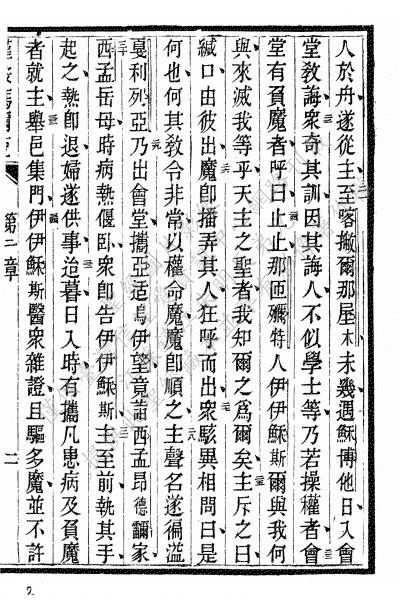 人於舟遂從主至喀撇爾那屋木未幾遇穌博他日入會
堂敎誨衆奇其訓因其誨人不似學士等乃若操權者會
堂有負魔者呼曰止止那匝彌特人伊伊穌斯爾與我何
與來滅我等乎天主之聖者我知爾之爲爾矣主斥之曰
緘口由彼出魔卽播弄其人狂呼而出衆駭異相問曰是
何也何其敎令非常以權命魔魔卽順之主聲名遂徧溢
戛利列亞乃出會堂攜亞适烏伊望竟詣西孟昂德爾家
西孟岳母時病熱偃臥衆卽告伊伊穌斯主至前執其手
起之熱卽退婦遂供事迨暮日入時有攜凡患病及負魔
者就主舉邑集門伊伊穌斯醫衆雜證且驅多魔並不許
第一章
二
2